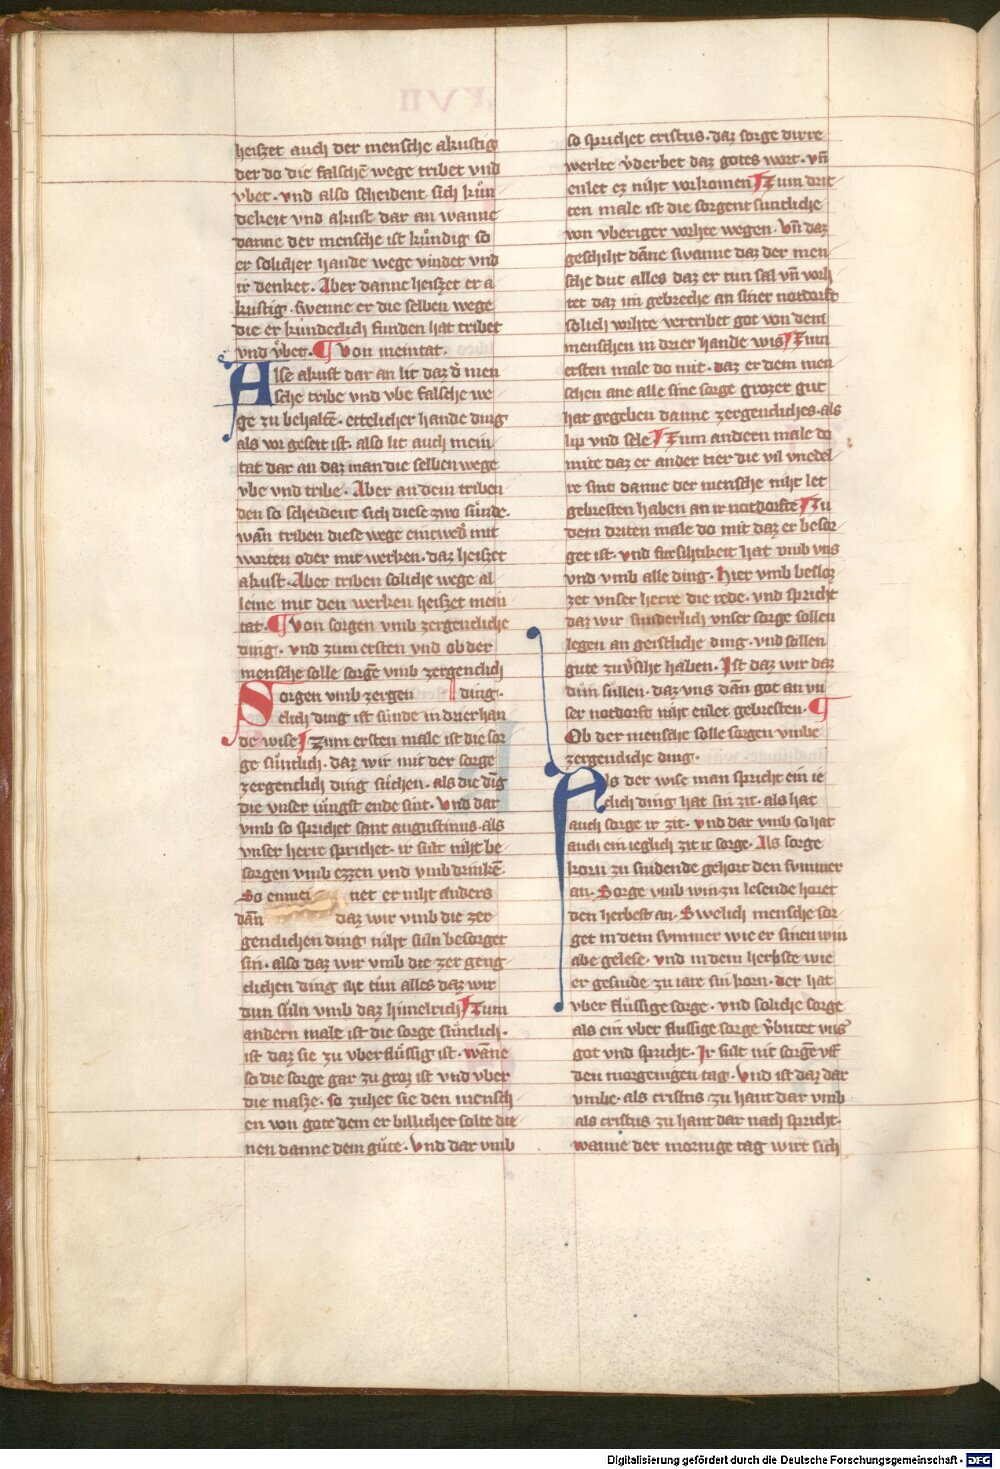 heiszet auch der mensche akustig
der do die falschē wege tribet vnd
vbet · vnd also scheident sich kuͤn
dekeit vnd akust dar an wanne
danne der mensche ist kuͤndig so
er solicher hande wege vindet vnd
ir denket. Aber danne heiszet er a
kustig · swenne er die selben wege
die er kundeclich funden hat tribet
vnd vͦbet. ¶ von meintat.
Alse akust dar an lit daz d̓ men
sche tribe vnd vbe falsche we
ge zu behaltē · ettelicher hande ding
als vor geseit ist · also lit auch mein
tat dar an daz man die selben wege
vbe vnd tribe · Aber an dem triben
den so scheident sich diese zwo suͤnde.
wan̄ triben diese wege eintwed̓ mit
worten oder mit werken · daz heiszet
akust · Aber triben soliche wege al
leine mit den werken heiszet mein
tat. ¶ von sorgen vmb zergencliche
ding · vnd zum ersten vnd ob der
mensche solle sorgē vmb zergenclich
Sorgen vmb zergen ding.
clich ding ist sunde in drier han
de wise / zum ersten male ist die sor
ge suͤntlich · daz wir mit der sorge
zergenclich ding suͤchen · als die dīg
die vnser iuͤngst ende sint · vnd dar
vmb so sprichet sant augustinus · als
vnser herre sprichet · ir sult niht be
sorgen vmb ezzen vnd vmb drinkē.
So enmei net er niht anders
dan̄ daz wir vmb die zer
genclichen ding niht suln besorget
sin · also daz wir vmb die zergeng
clichen ding iht tuͤn alles daz wir
dun suͤln vmb daz himelrich / Zum
andern male ist die sorge suͤntlich ·
ist daz sie zu vberfluͤssig ist · wan̄e
so die sorge gar zu groz ist vnd vber
die masze · so zuhet sie den mensch
en von gote dem er billicher solte die
nen danne dem guͤte · vnd dar vmb
so sprichet cristus · daz sorge dirre
werlte v̓derbet daz gotes wort · vn̄
enlet ez niht vorkomen / Zum drit
ten male ist die sorgent suntliche
von vberiger vorhte wegen · Vn̄ daz
geschiht dan̄e swanne daz der men
sche dut alles daz er tun sal vn̄ vorh
tet daz im gebreche an siner notdorft
solich vorhte vertribet got von dem
menschen in drier hande wis / Zum
ersten male do mit · daz er dem men
schen ane alle sine sorge grozer gut
hat gegeben danne zergencliches · als
lip vnd sele / Zum andern male do
mite daz er ander tier die vil vnedel
re sint danne der mensche niht let
gebresten haben an ir notdorfte / Zu
dem driten male do mit daz er besor
get ist · vnd fursihtikeit hat vmb vns
vnd vmb alle ding · Hier vmb besloz
zet vnser herre die rede · vnd spricht
daz wir sunderlich vnser sorge sollen
legen an geistliche ding · vnd sollen
gute zuv̓siht haben · Ist daz wir daz
duͤn suͤllen · daz vns dan̄ got an vn
ser notdorft niht enlet gebresten · ¶
Ob der mensche solle sorgen vmbe
zergencliche ding ·
Als der wise man spricht ein ie
clich ding hat sin zit · als hat
auch sorge ir zit · vnd dar vmb so hat
auch ein ieglich zit ir sorge · Als sorge
korn zu snidende gehort den symmer
an · Sorge vmb win zu lesende horet
den herbest an · Swelich mensche sor
get in dem symmer wie er sinen win
abe gelese · vnd in dem herbste wie
er gesnide zu iare sin korn · der hat
vber fluͤssige sorge · vnd soliche sorge
als ein vber flussige sorge v̓butet vns
got vnd spricht · Ir sult nit sorgē vff
den morgenigen tag · Vnd ist daz dar
vmbe · als cristus zu hant dar vmb
als cristus zu hant dar nach spricht ·
wanne der mornige tag wirt sich
Digitalisierung gefördert durch die Deutsche Forschungsgemeinschaft - DFG